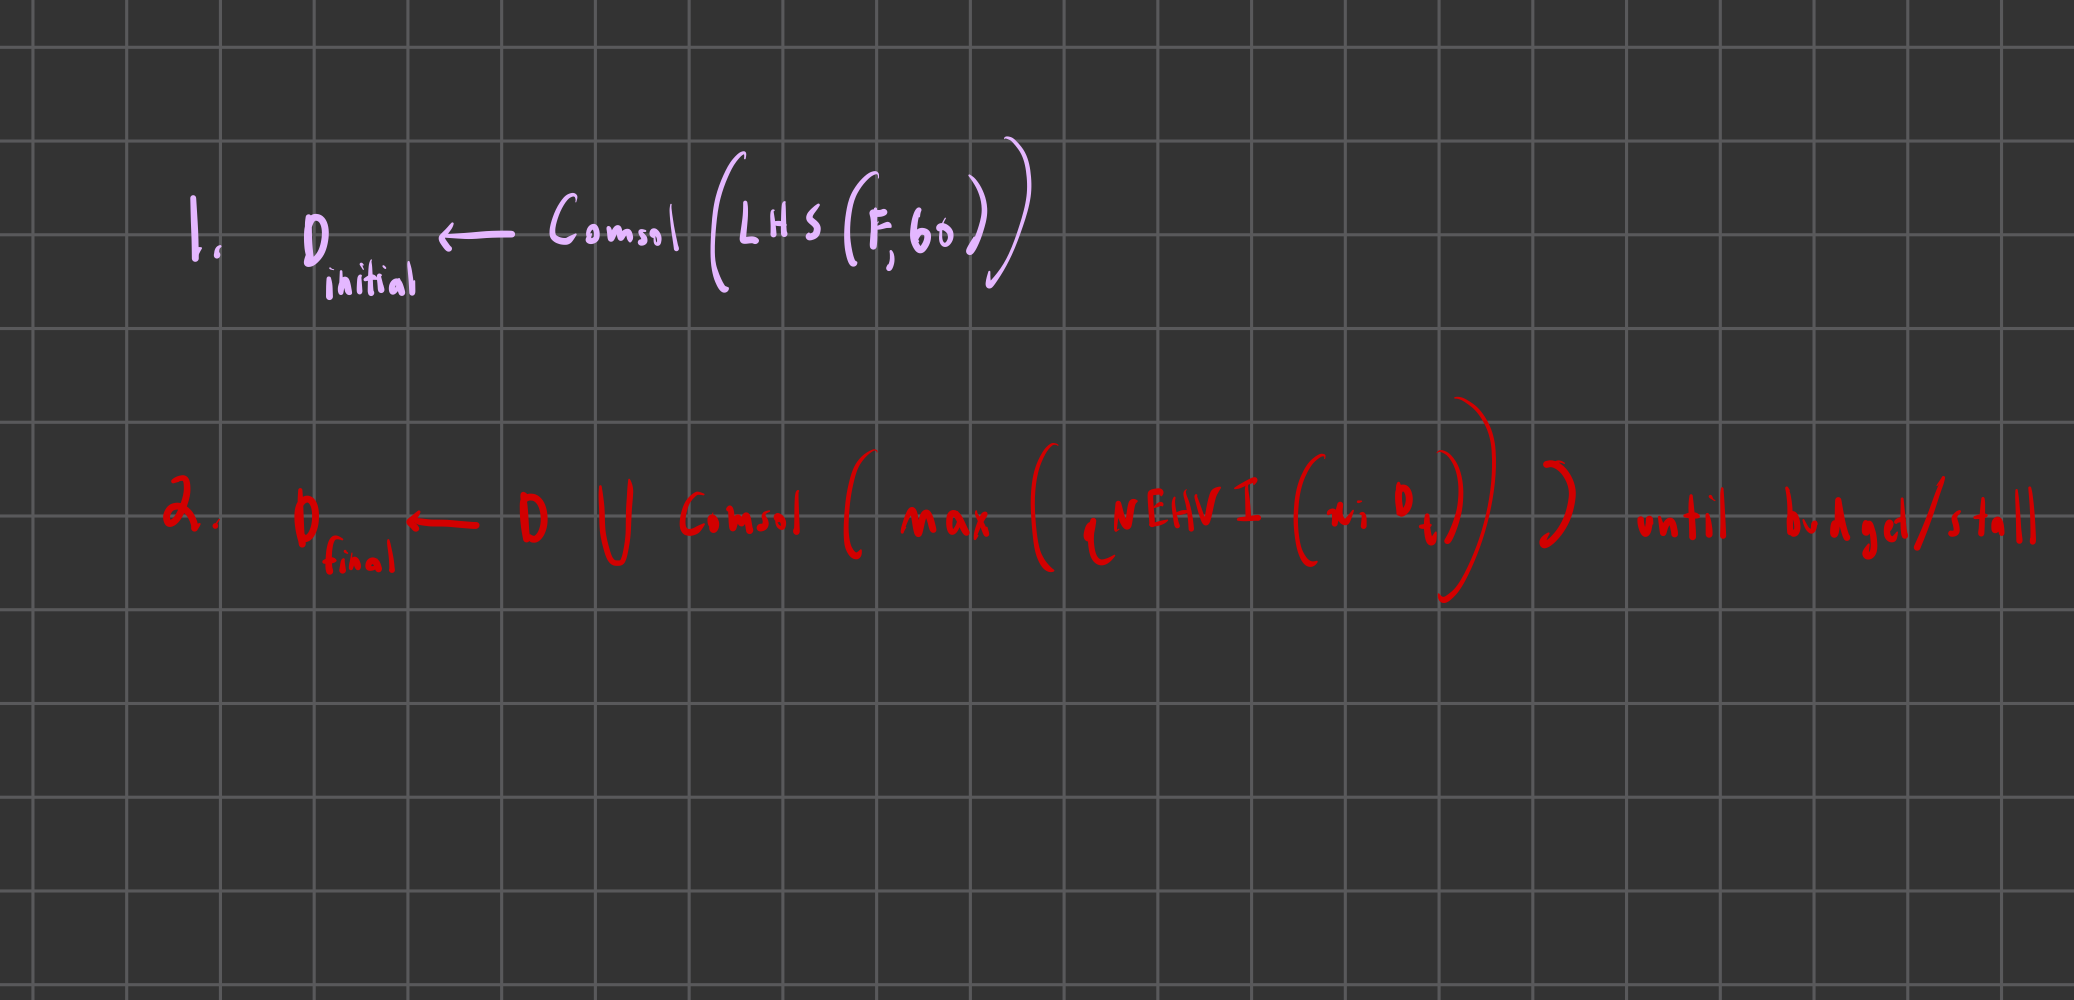 1. D initial ← Comsol (LHS (F, 60))
2. D final ← D ∪ Comsol (max (qNEHVI (x; D_t))) until budget/stall